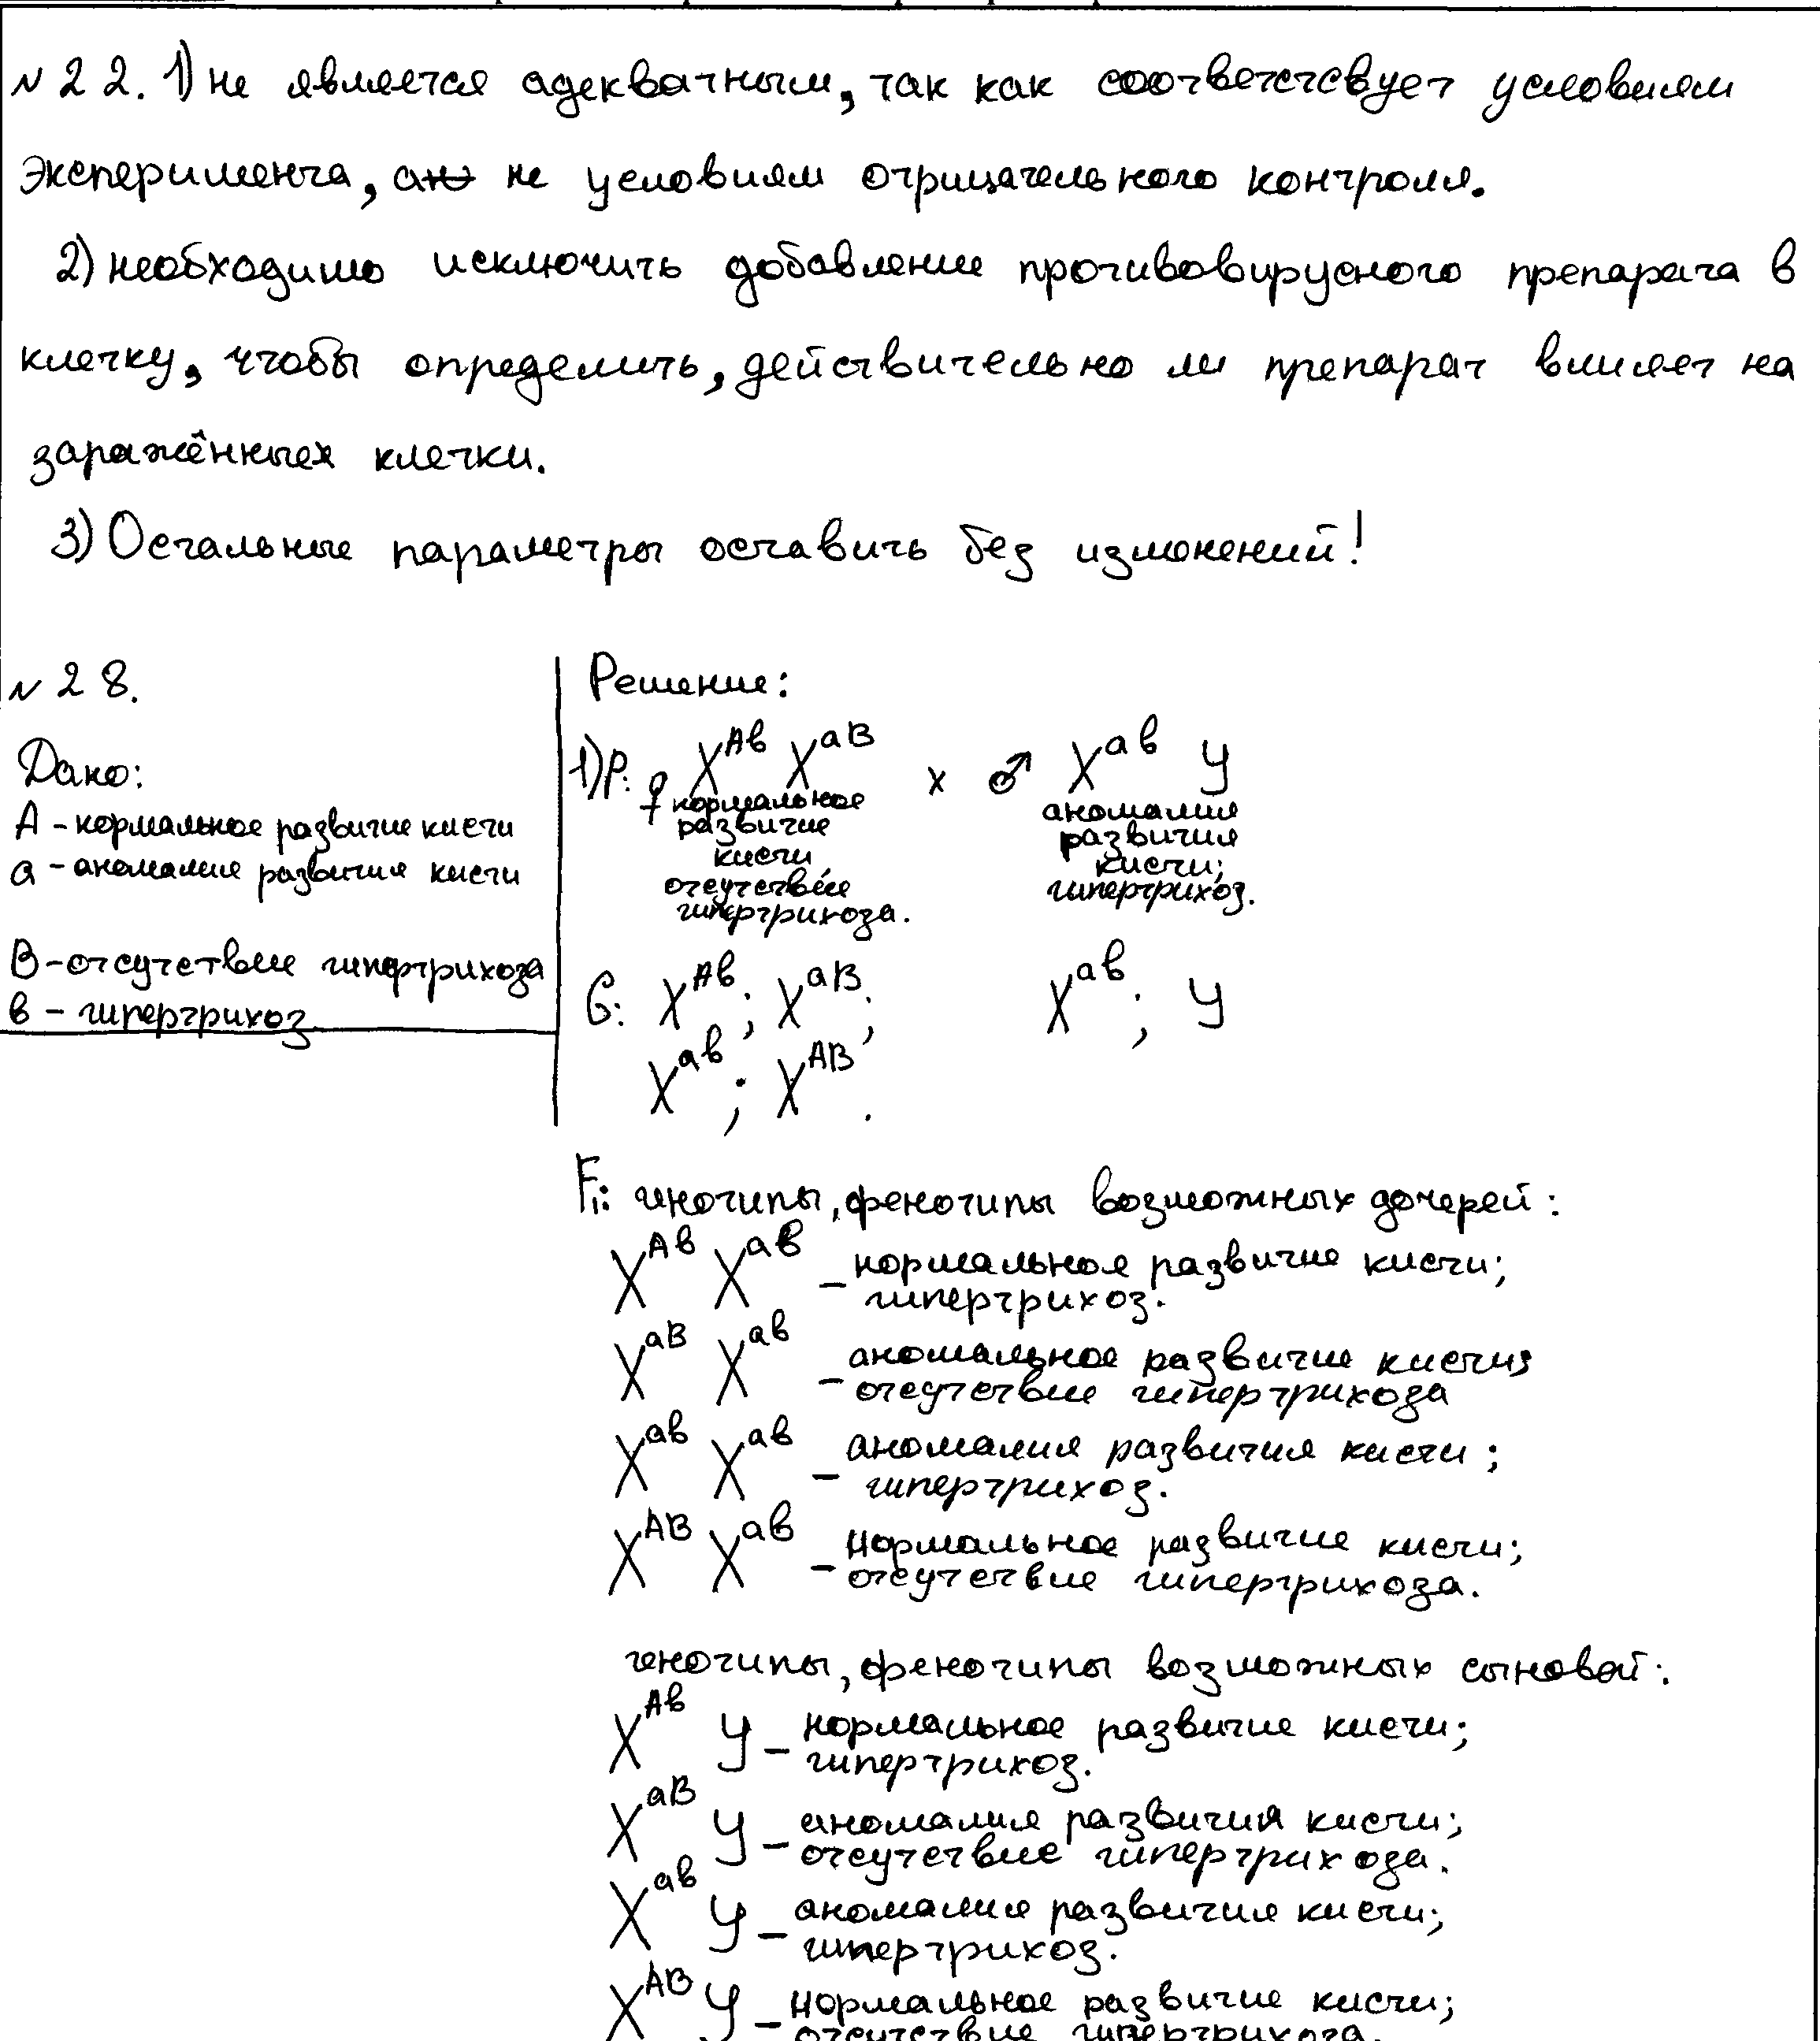 № 22. 1) не является адекватным, так как соответствует условиям
эксперимента, а не условиям отрицательного контроля.
2) необходимо исключить добавление противовирусного препарата в
клетку, чтобы определить, действительно ли препарат влияет на
заражённых клетки.
3) Остальные параметры оставить без изменений!
№ 28.
Дано:
A - нормальное развитие кисти
a - аномалия развития кисти
B - отсутствие гипертрихоза
в - гипертрихоз
Решение:
1) P: ♀ X^Aв X^aB x ♂ X^aв У
нормальное развитие кисти отсутствие гипертрихоза.
аномалия развития кисти; гипертрихоз.
G: X^Aв; X^aB; X^aв; У
X^aв; X^AB.
F₁: генотипы, фенотипы возможных дочерей:
X^Aв X^aв – нормальное развитие кисти;
гипертрихоз.
X^aB X^aв – аномальное развитие кисти;
отсутствие гипертрихоза
X^aв X^aв – аномалия развития кисти;
гипертрихоз.
X^AB X^aв – нормальное развитие кисти;
отсутствие гипертрихоза.
генотипы, фенотипы возможных сыновей:
X^Aв У – нормальное развитие кисти;
гипертрихоз.
X^aB У – аномалия развития кисти;
отсутствие гипертрихоза.
X^aв У – аномалия развития кисти;
гипертрихоз.
X^AB У – нормальное развитие кисти;
отсутствие гипертрихоза.